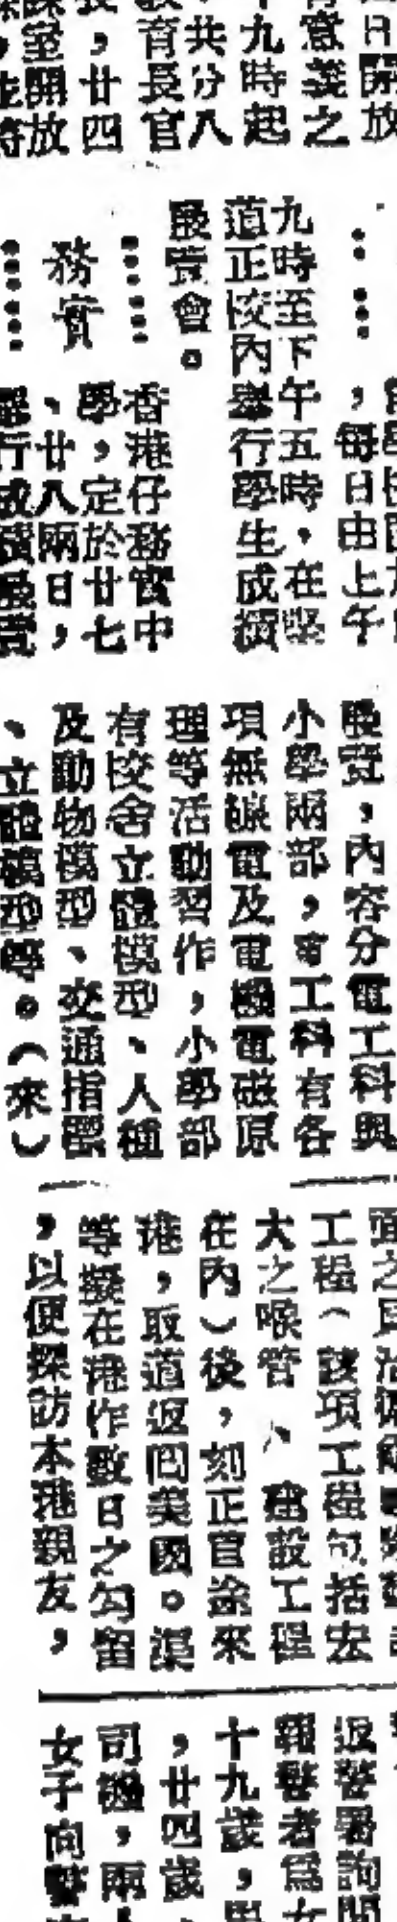 日開放
意義之
九時起
共分八
育長官
，廿四
室開放
，每日由上午
九時至下午五時，在堅
道正校內舉行學生成績
展覽會。
務實
香港仔務實中
學，定於廿七
、廿八兩日，
舉行成績展覽
展覽，內容分電工科與
小學兩部，電工科有各
項無線電及電機電磁原
理等活動習作，小學部
有校舍立體模型、人種
及動物模型、交通指標
、立體模型等。（來）
工程（該項工程包括宏
大之喉管 建設工程
在內）後，刻正首途來
港，取道返回美國。渠
等擬在港作數日之勾留
，以便探訪本港親友，
返警署詢問
報警者爲女
十九歲，
，廿四歲
司機，兩人
女子向警